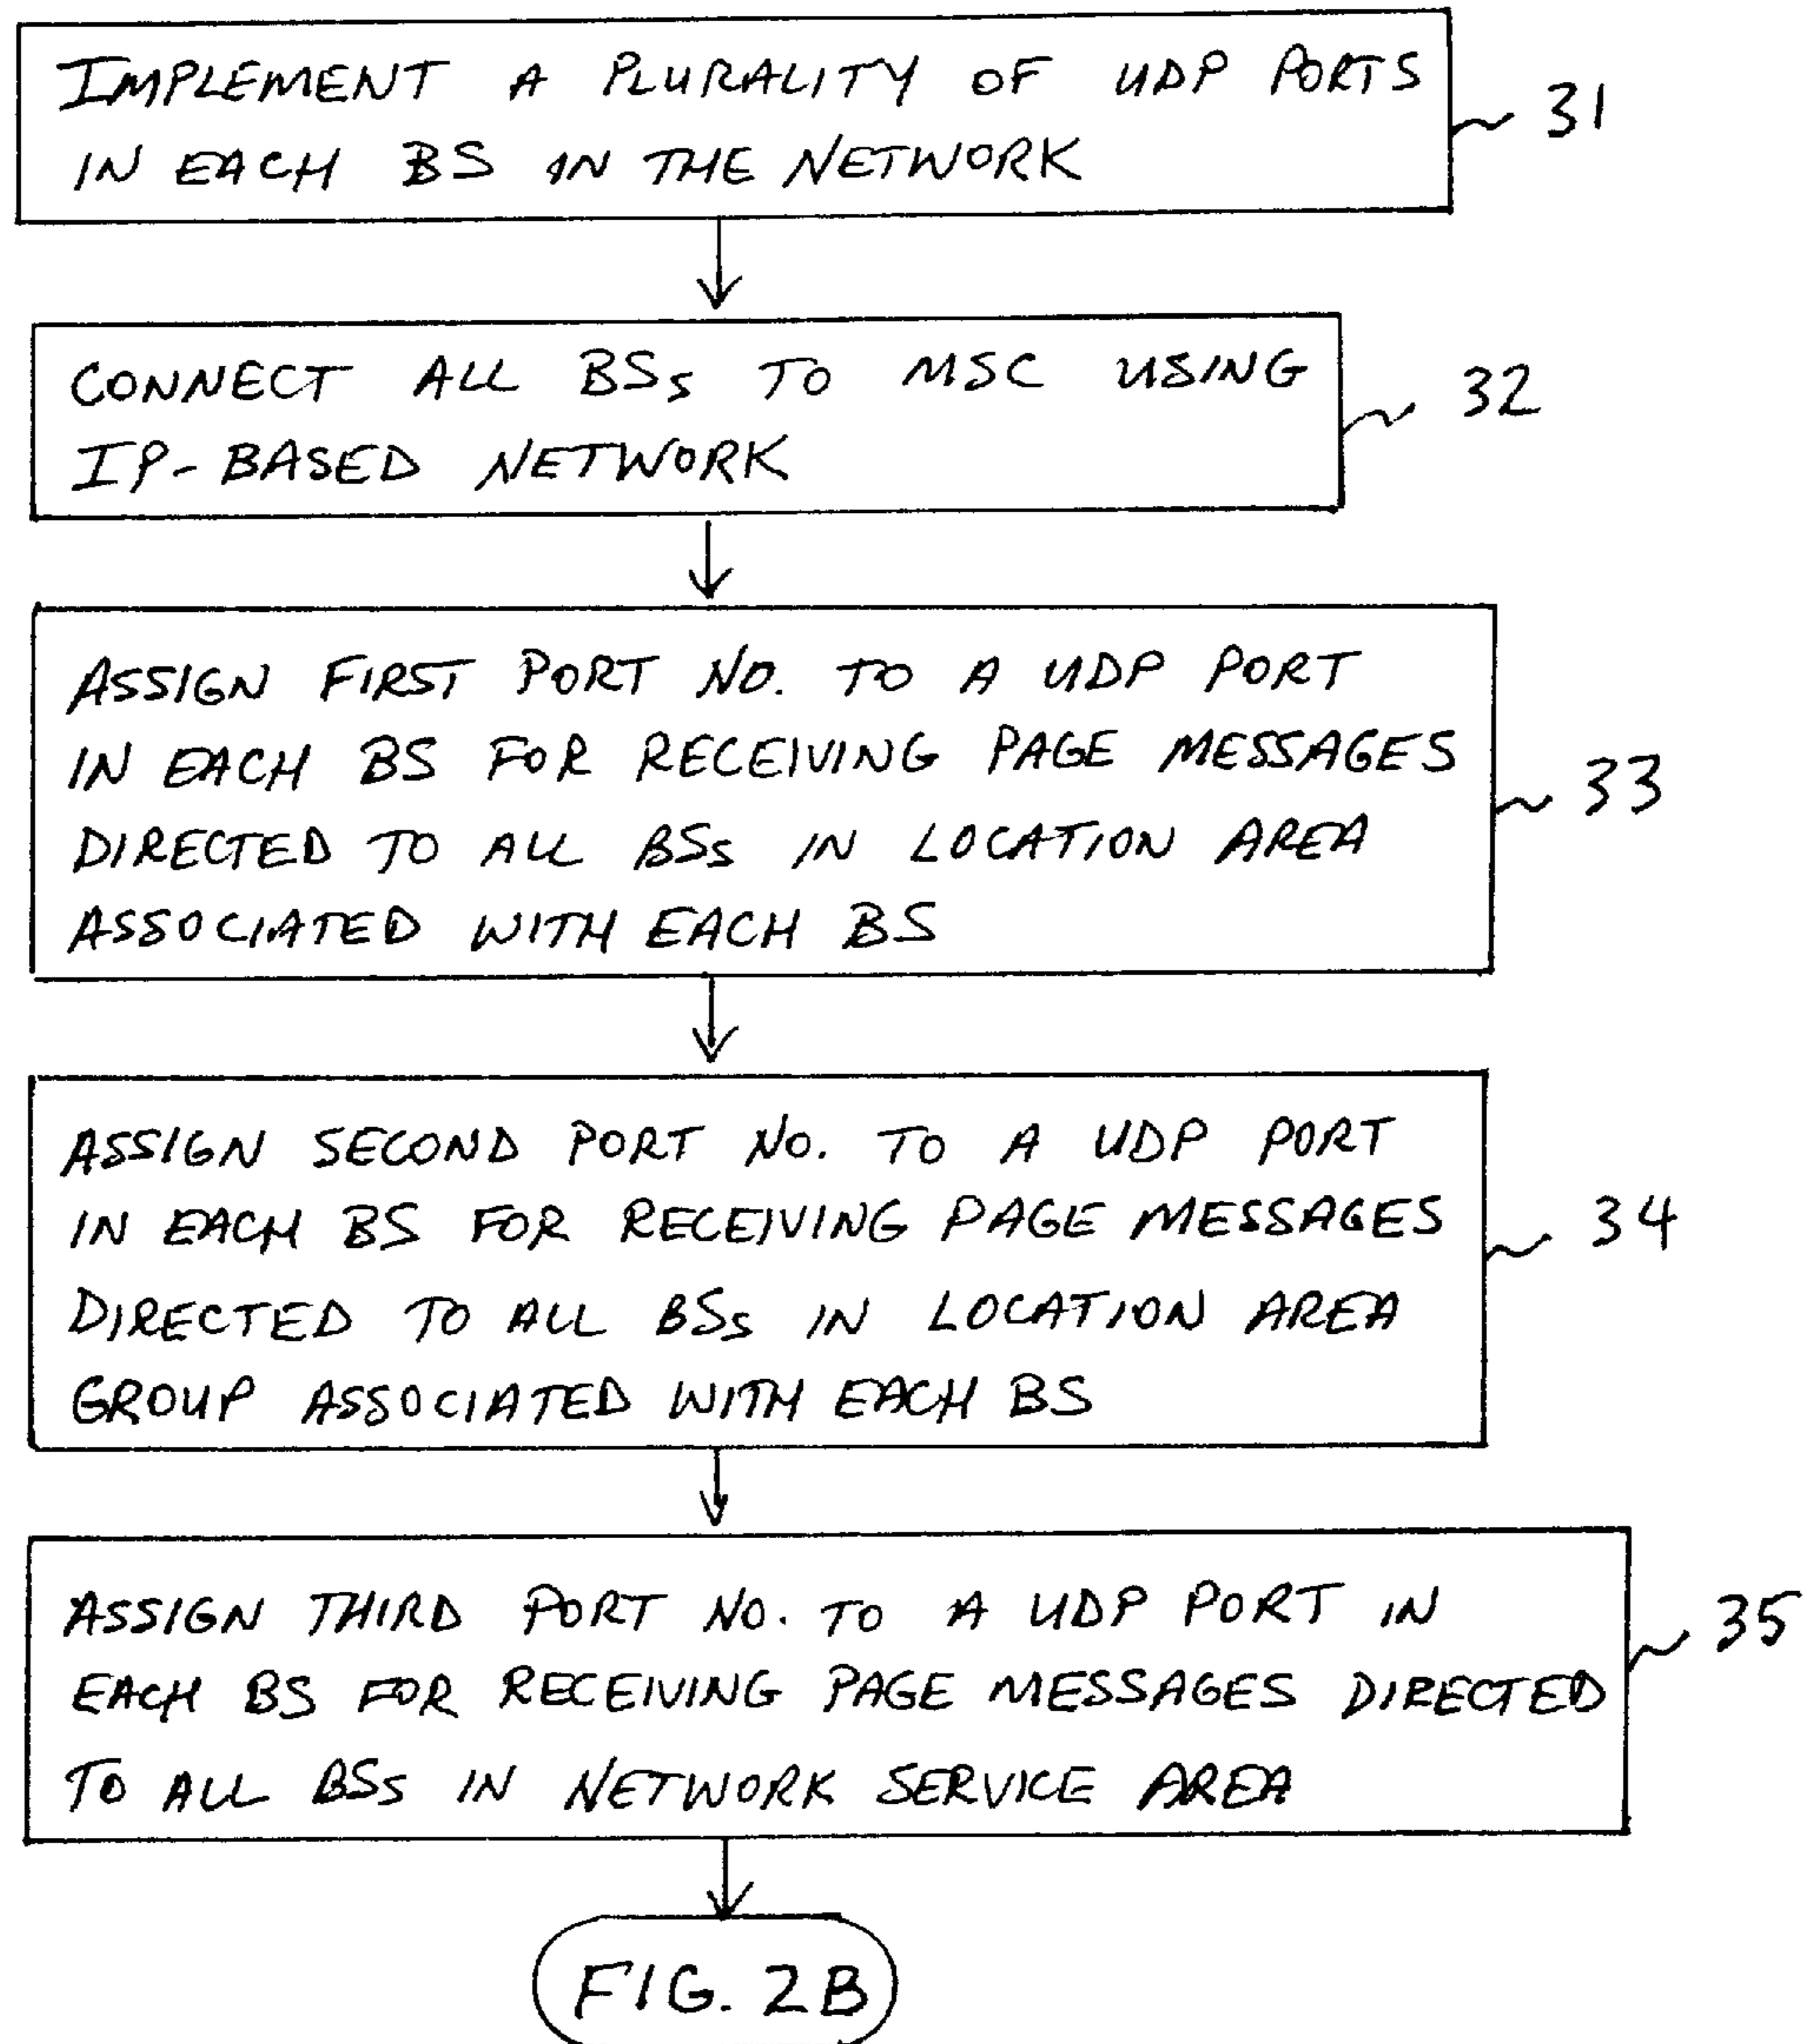 IMPLEMENT A PLURALITY OF UDP PORTS
IN EACH BS IN THE NETWORK
31
CONNECT ALL BSs TO MSC USING
IP-BASED NETWORK
32
ASSIGN FIRST PORT NO. TO A UDP PORT
IN EACH BS FOR RECEIVING PAGE MESSAGES
DIRECTED TO ALL BSs IN LOCATION AREA
ASSOCIATED WITH EACH BS
33
ASSIGN SECOND PORT NO. TO A UDP PORT
IN EACH BS FOR RECEIVING PAGE MESSAGES
DIRECTED TO ALL BSs IN LOCATION AREA
GROUP ASSOCIATED WITH EACH BS
34
ASSIGN THIRD PORT NO. TO A UDP PORT IN
EACH BS FOR RECEIVING PAGE MESSAGES DIRECTED
TO ALL BSs IN NETWORK SERVICE AREA
35
FIG. 2B